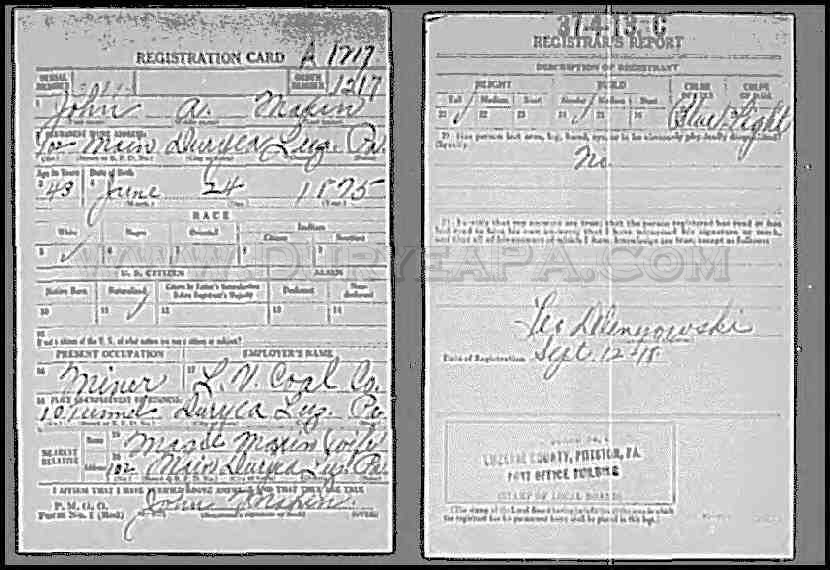 REGISTRATION CARD A 1717
SERIAL NUMBER
ORDER NUMBER 1217
1 John A.
PERMANENT HOME ADDRESS:
102 Main Duryea Luz. Pa.
Age in Years Date of Birth
43 June 24 1875
RACE
White Negro Oriental Indian
Citizen Noncitizen
5 6 7 8 9
U. S. CITIZEN ALIEN
Native Born Naturalized Citizen by Father's Naturalization Before Registrant's Majority Declarant Non-declarant
10 11 12 13 14
15
If not a citizen of the U. S., of what nation are you a citizen or subject?
PRESENT OCCUPATION EMPLOYER'S NAME
16 Miner 17 L. V. Coal Co.
18 PLACE OF EMPLOYMENT OR BUSINESS:
Duryea Luz. Pa.
NEAREST RELATIVE
Name 19 (wife)
Address 20 102 Main Duryea Luz. Pa.
I AFFIRM THAT I HAVE VERIFIED ABOVE ANSWERS AND THAT THEY ARE TRUE
P. M. G. O.
Form No. 1 (Red) John
37-4-13. C
REGISTRAR'S REPORT
DESCRIPTION OF REGISTRANT
HEIGHT BUILD COLOR OF EYES COLOR OF HAIR
Tall Medium Short Slender Medium Stout
21 22 23 24 25 26 Blue Light
29 Has person lost arm, leg, hand, eye, or is he obviously physically disqualified?
(Specify.)
No
30 I certify that my answers are true; that the person registered has read or has
had read to him his own answers; that I have witnessed his signature or mark,
and that all of his answers of which I have knowledge are true, except as follows:
WWW.DURYEAPA.COM
Date of Registration Sept. 12-18
LUZERNE COUNTY, PITTSTON, PA.
POST OFFICE BUILDING
(STAMP OF LOCAL BOARD)
(The stamp of the Local Board having jurisdiction of the area in which
the registrant has his permanent home shall be placed in this box.)